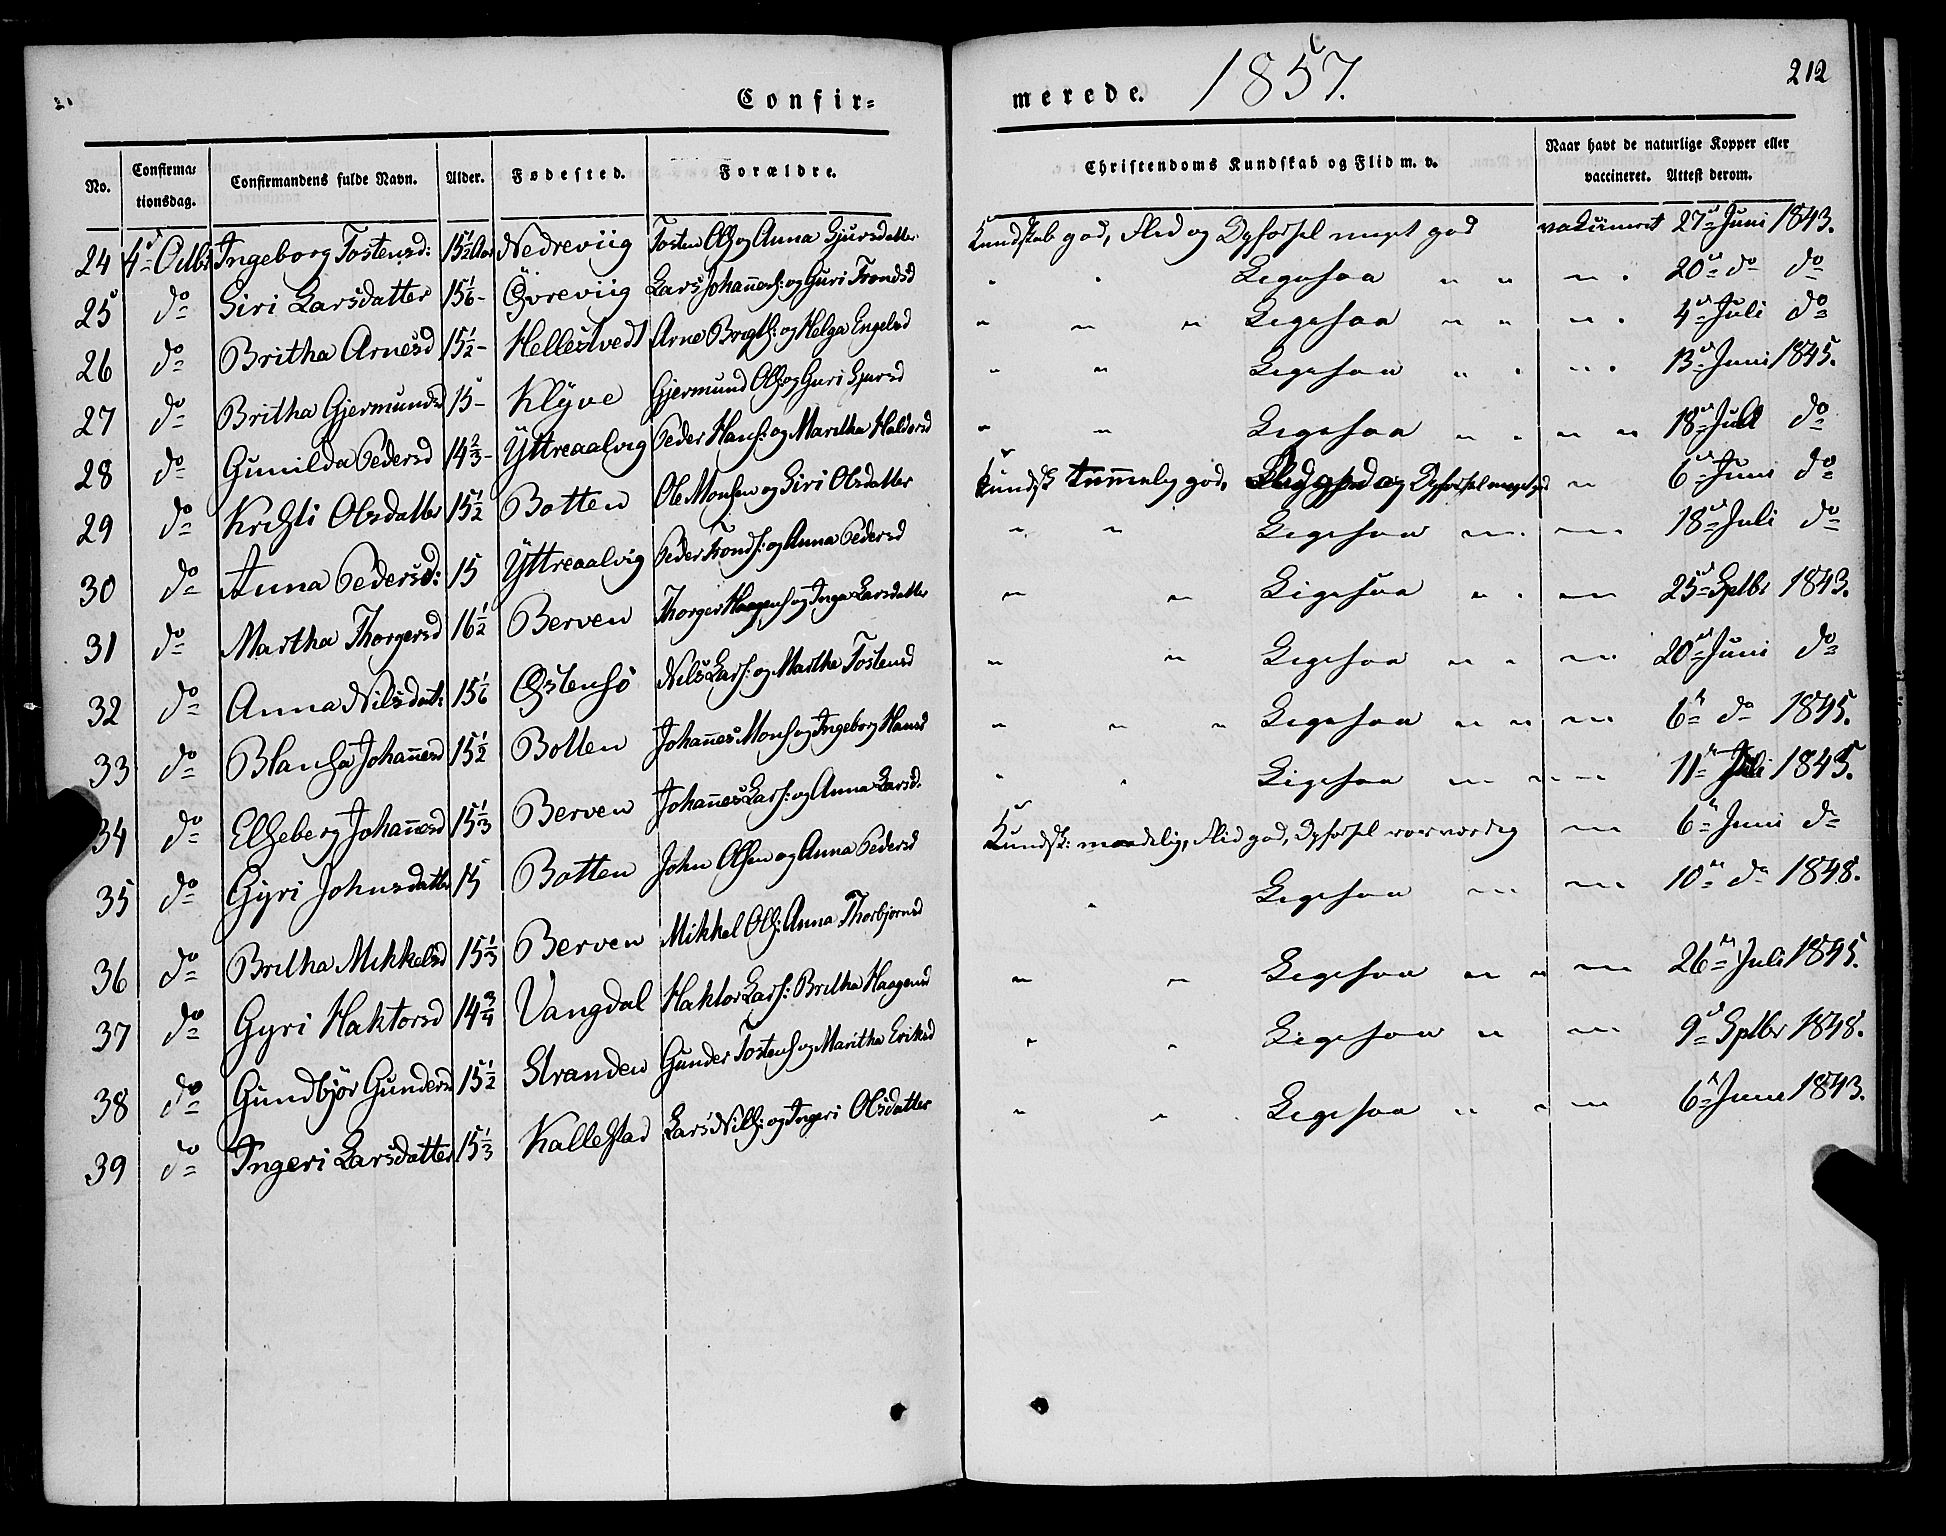 Confir-
merede. 1857. 212
No. Confirma-tionsdag. Confirmandens fulde Navn. Alder. Fødested. Forældre. Christendoms Kundskab og Flid m. v. Naar havt de naturlige Kopper eller vaccineret. Attest derom.
24 4de Octbr Ingeborg Tostensd: 15½ Aar Nedreviig Tosten Ols: og Anna Gjursdatter Kundskab god, Flid og Opførsel meget god vakcineret 27de Juni 1843.
25 do Siri Larsdatter 15 1/6 - Øvreviig Lars Johanness: og Guri Trondsd Ligesaa " " " 20de do do
26 do Britha Arnesd 15½ - Hellestvedt Arne Brigts: og Helga Engelsd " " " Ligesaa " " " 4de Juli do
27 do Britha Gjermundsd 15 - Klyve Gjermund Ols: og Guri Gjursd " " Ligesaa " " " 13de Juni 1845.
28 do Gunilda Pedersd 14 2/3 - Yttreaalvig Peder Hans: og Maritha Haldorsd " " Ligesaa " " " " 18de Juli do
29 do Krihsti Olsdatter 15½ Botten Ole Monsen og Siri Olsdatter Kundsk temmelig god, Flid god og Opførsel meget god " 6de Juni do
30 do Anna Pedersd: 15 Yttreaalvig Peder Tronds: og Anna Pedersd " " Ligesaa " " 18de Juli do
31 do Martha Thorgersd 16½ Berven Thorger Haagens og Inga Larsdatter " " Ligesaa " " " 25de Sptbr 1843.
32 do Anna Nilsdatt: 15 1/6 Østensø Nils Lars: og Martha Tostensd " " Ligesaa " " " 20de Juni do
33 do Blansa Johannesd 15½ Botten Johannes Mons og Ingeborg Hansd " " " Ligesaa " " " 6te do 1845.
34 do Elseberg Johannesd 15 1/3 Berven Johannes Lars: og Anna Larsd. " " Ligesaa " " " 11te Juli 1843.
35 do Gyri Johnsdatter 15 Botten John Olsen og Anna Pedersd Kundsk: maadelig, Flid god, Opførsel roesværdig " 6te Juni do
36 do Britha Mikkelsd 15 1/3 Berven Mikkel Ols: Anna Thorbjørnsd " Ligesaa " " 10de do 1848.
37 do Gyri Haktorsd 14¾ Vangdal Haktor Lars: Britha Haagensd " " Ligesaa " " " 26de Juli 1845.
38 do Gundbjör Gundersd 15½ Stranden Gunder Tostens og Maritha Eriksd " " Ligesaa " " 9de Sptbr 1848.
39 do Ingeri Larsdatter 15 1/3 Kallestad Lars Nils: og Ingeri Olsdatter " " Ligesaa " " " 6te Juni 1843.